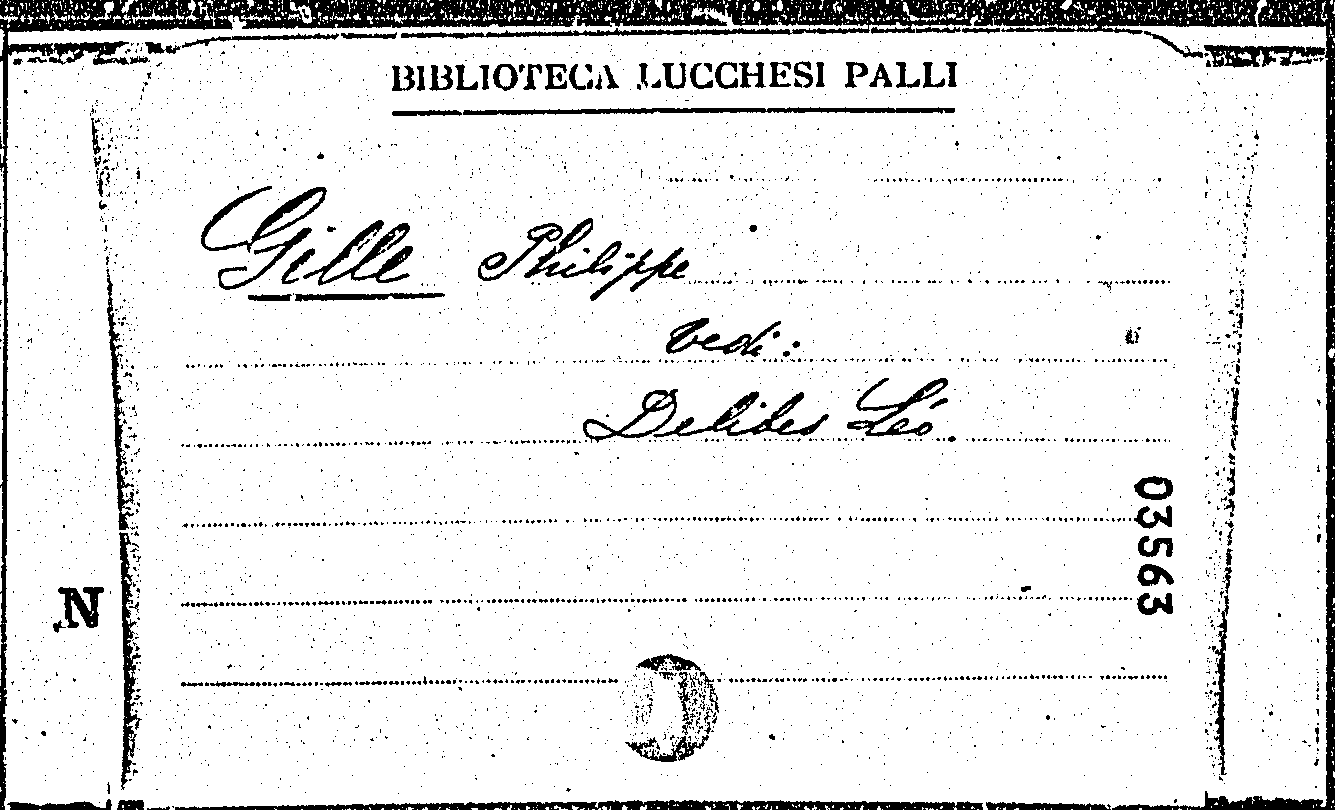 BIBLIOTECA LUCCHESI PALLI
Gille Philippe
vedi:
Delibes Léo.
03563
N